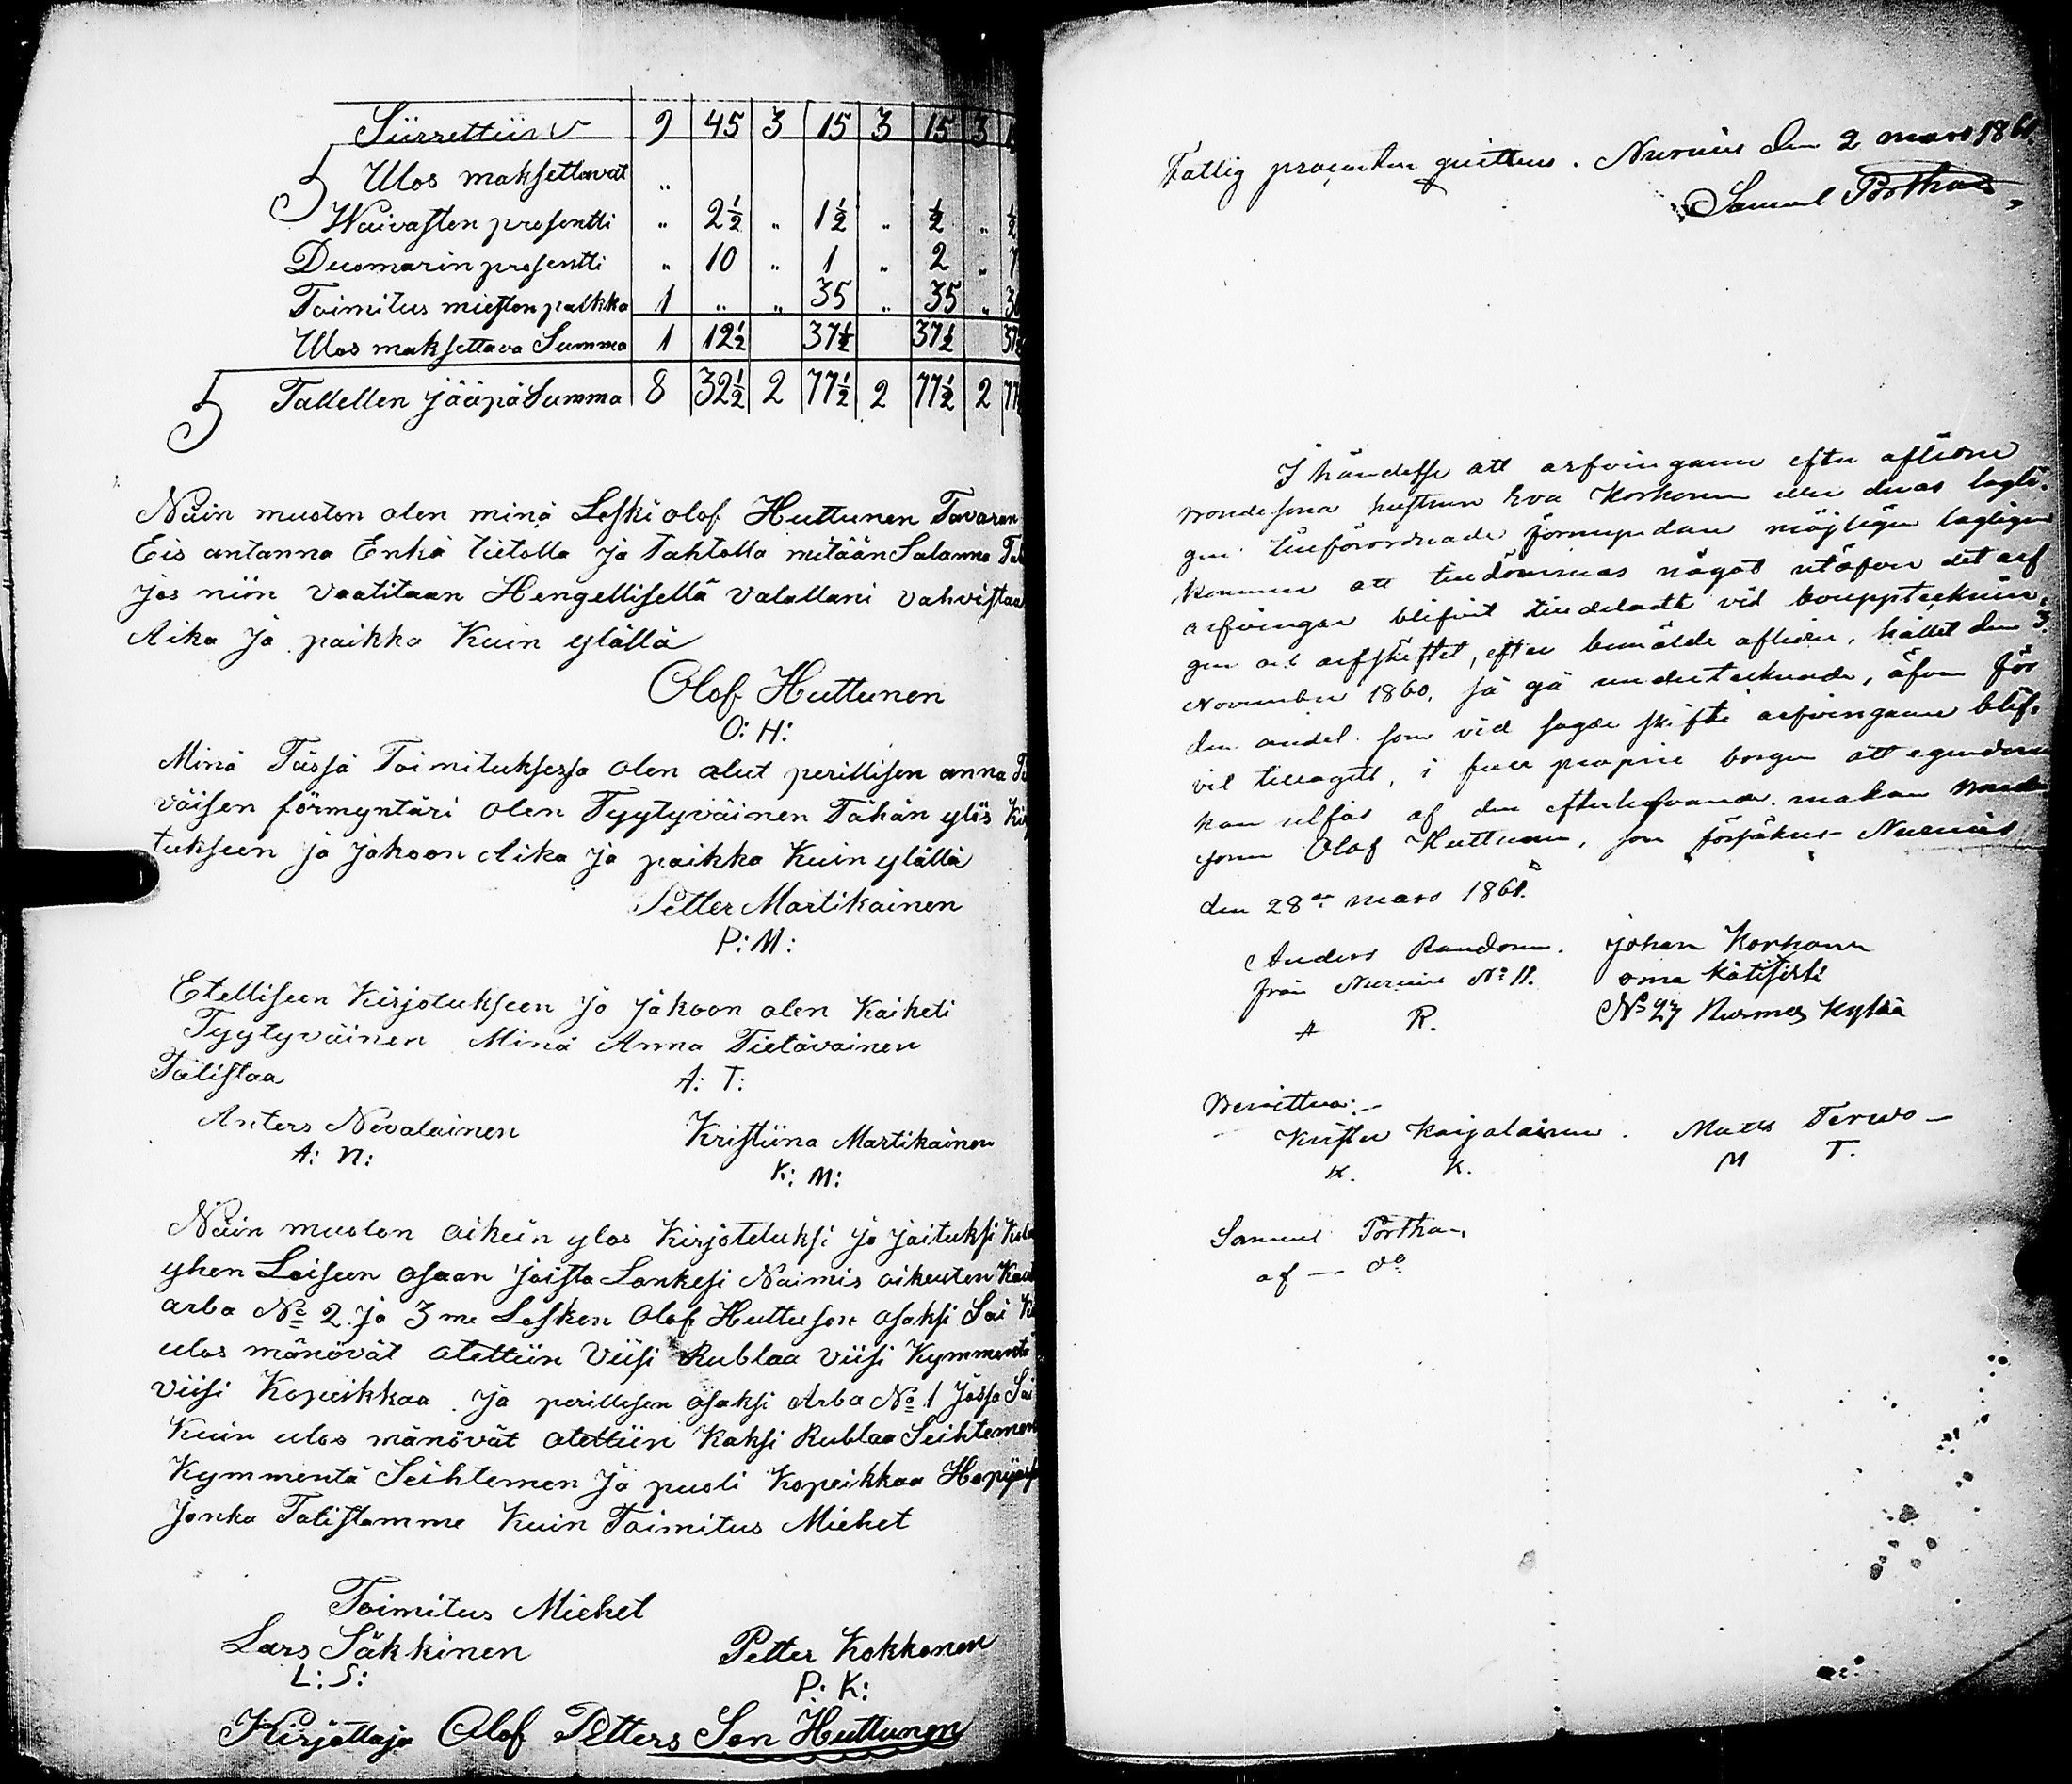 Siirrettiin 9 45 3 15 3 15 3
Ulos maksettavat "
Waivasten prosentti " 2½ " 1½ " ½ " ½
Duomarin prosentti " 10 " 1 " 2 "
Toimitus miesten palkka 1 " " 35 " 35 "
Ulos maksettava Summa 1 12½ 37½ 37½ 37½
Tallellen jääpä Summa 8 32½ 2 77½ 2 77½ 2 77
Näin muoton olen minä Leski olof Huttunen Tavaran
Eis antanna Enkä tietolla ja tahtolla mitään Salanna
jos niin vaatitaan Hengellisellä valallani vahvistaa
Aika ja paikka Kuin ylällä
Olof Huttunen
O: H:
Minä Tässä Toimituksessa olen olut perillisen anna
väisen förmyntäri olen Tyytyväinen Tähän ylös
tukseen ja jakoon Aika ja paikka Kuin ylällä
Petter Martikainen
P: M:
Etelliseen Kirjotukseen ja jakoon olen Kaiketi
Tyytyväinen Minä Anna Tietäväinen
Tolistaa A: T:
Anters Nevalainen Kristiina Martikainen
A: N: K: M:
Näin muoton oikein ylos Kirjoteluksi ja jaituksi
yhen Laiseen osaan joista Lankesi Naimis oikeuten
arba No 2 ja 3 me Lesken Olof Huttusen osaksi Sai
ulos mänövät otettiin Viisi Rublaa viisi Kymmentä
viisi Kopeikkaa. ja perillisen osaksi Arba No 1 jossa
Kuin ulos mänövät otettiin Kaksi Rublaa Seihtemen
Kymmentä Seihtemen ja puoli Kopeikkaa
Jonka Tolistamme Kuin Toimitus Miehet
Toimitus Miehet
Lars Säkkinen Petter Kokkonen
L: S: P: K:
Kirjottaja Olof Petters Son Huttunen
Fattig procenten quitteras. Nurmis den 2 mars 1861.
Samuel Porthan
I händelse att arfvingarne efter aflidne
bondesona hustrun Eva Korhonen eller deras lagli-
gen tillförordnade förmyndare möjligen lagligen
kommer att tilldömmas något utöfver det arf
arfvingar blifvit tilldeladt vid boupptecknin-
gen och arfskiftet, efter bemälde aflidne, hållet den 3
November 1860, så gå undertecknade, äfven för
den andel som vid sagde skifte arfvingarne blif-
vit tillagdt, i full proprie borgen att egendomen
kan utfås af den efterlefvande makan bonde
sonen Olof Huttunen, som försäkras Nurmis
den 28de mars 1861.
Anders Raudonen. Johan Korhonen
från Nurmis No 11. oma kätisesti
A R. No 27 Nurmes kylää
Bevittna:
Krister Karjalainen. Mats Tervo
K. K. M T.
Samuel Porthan
af — do